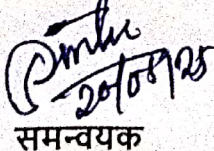 20/08/25
समन्वयक